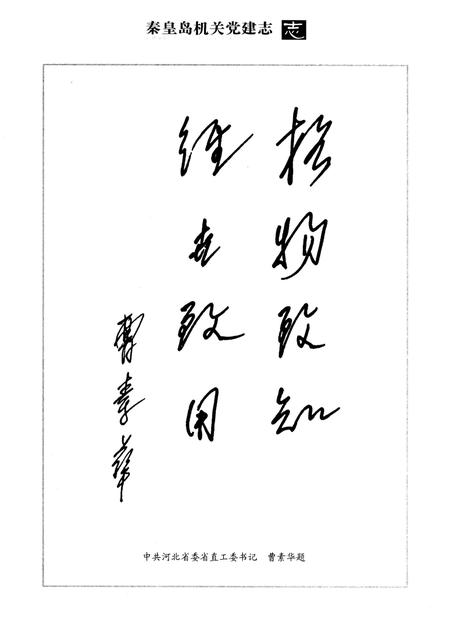 秦皇岛机关党建志 志
格物致知
经世致用
曹素华
中共河北省委省直工委书记 曹素华题